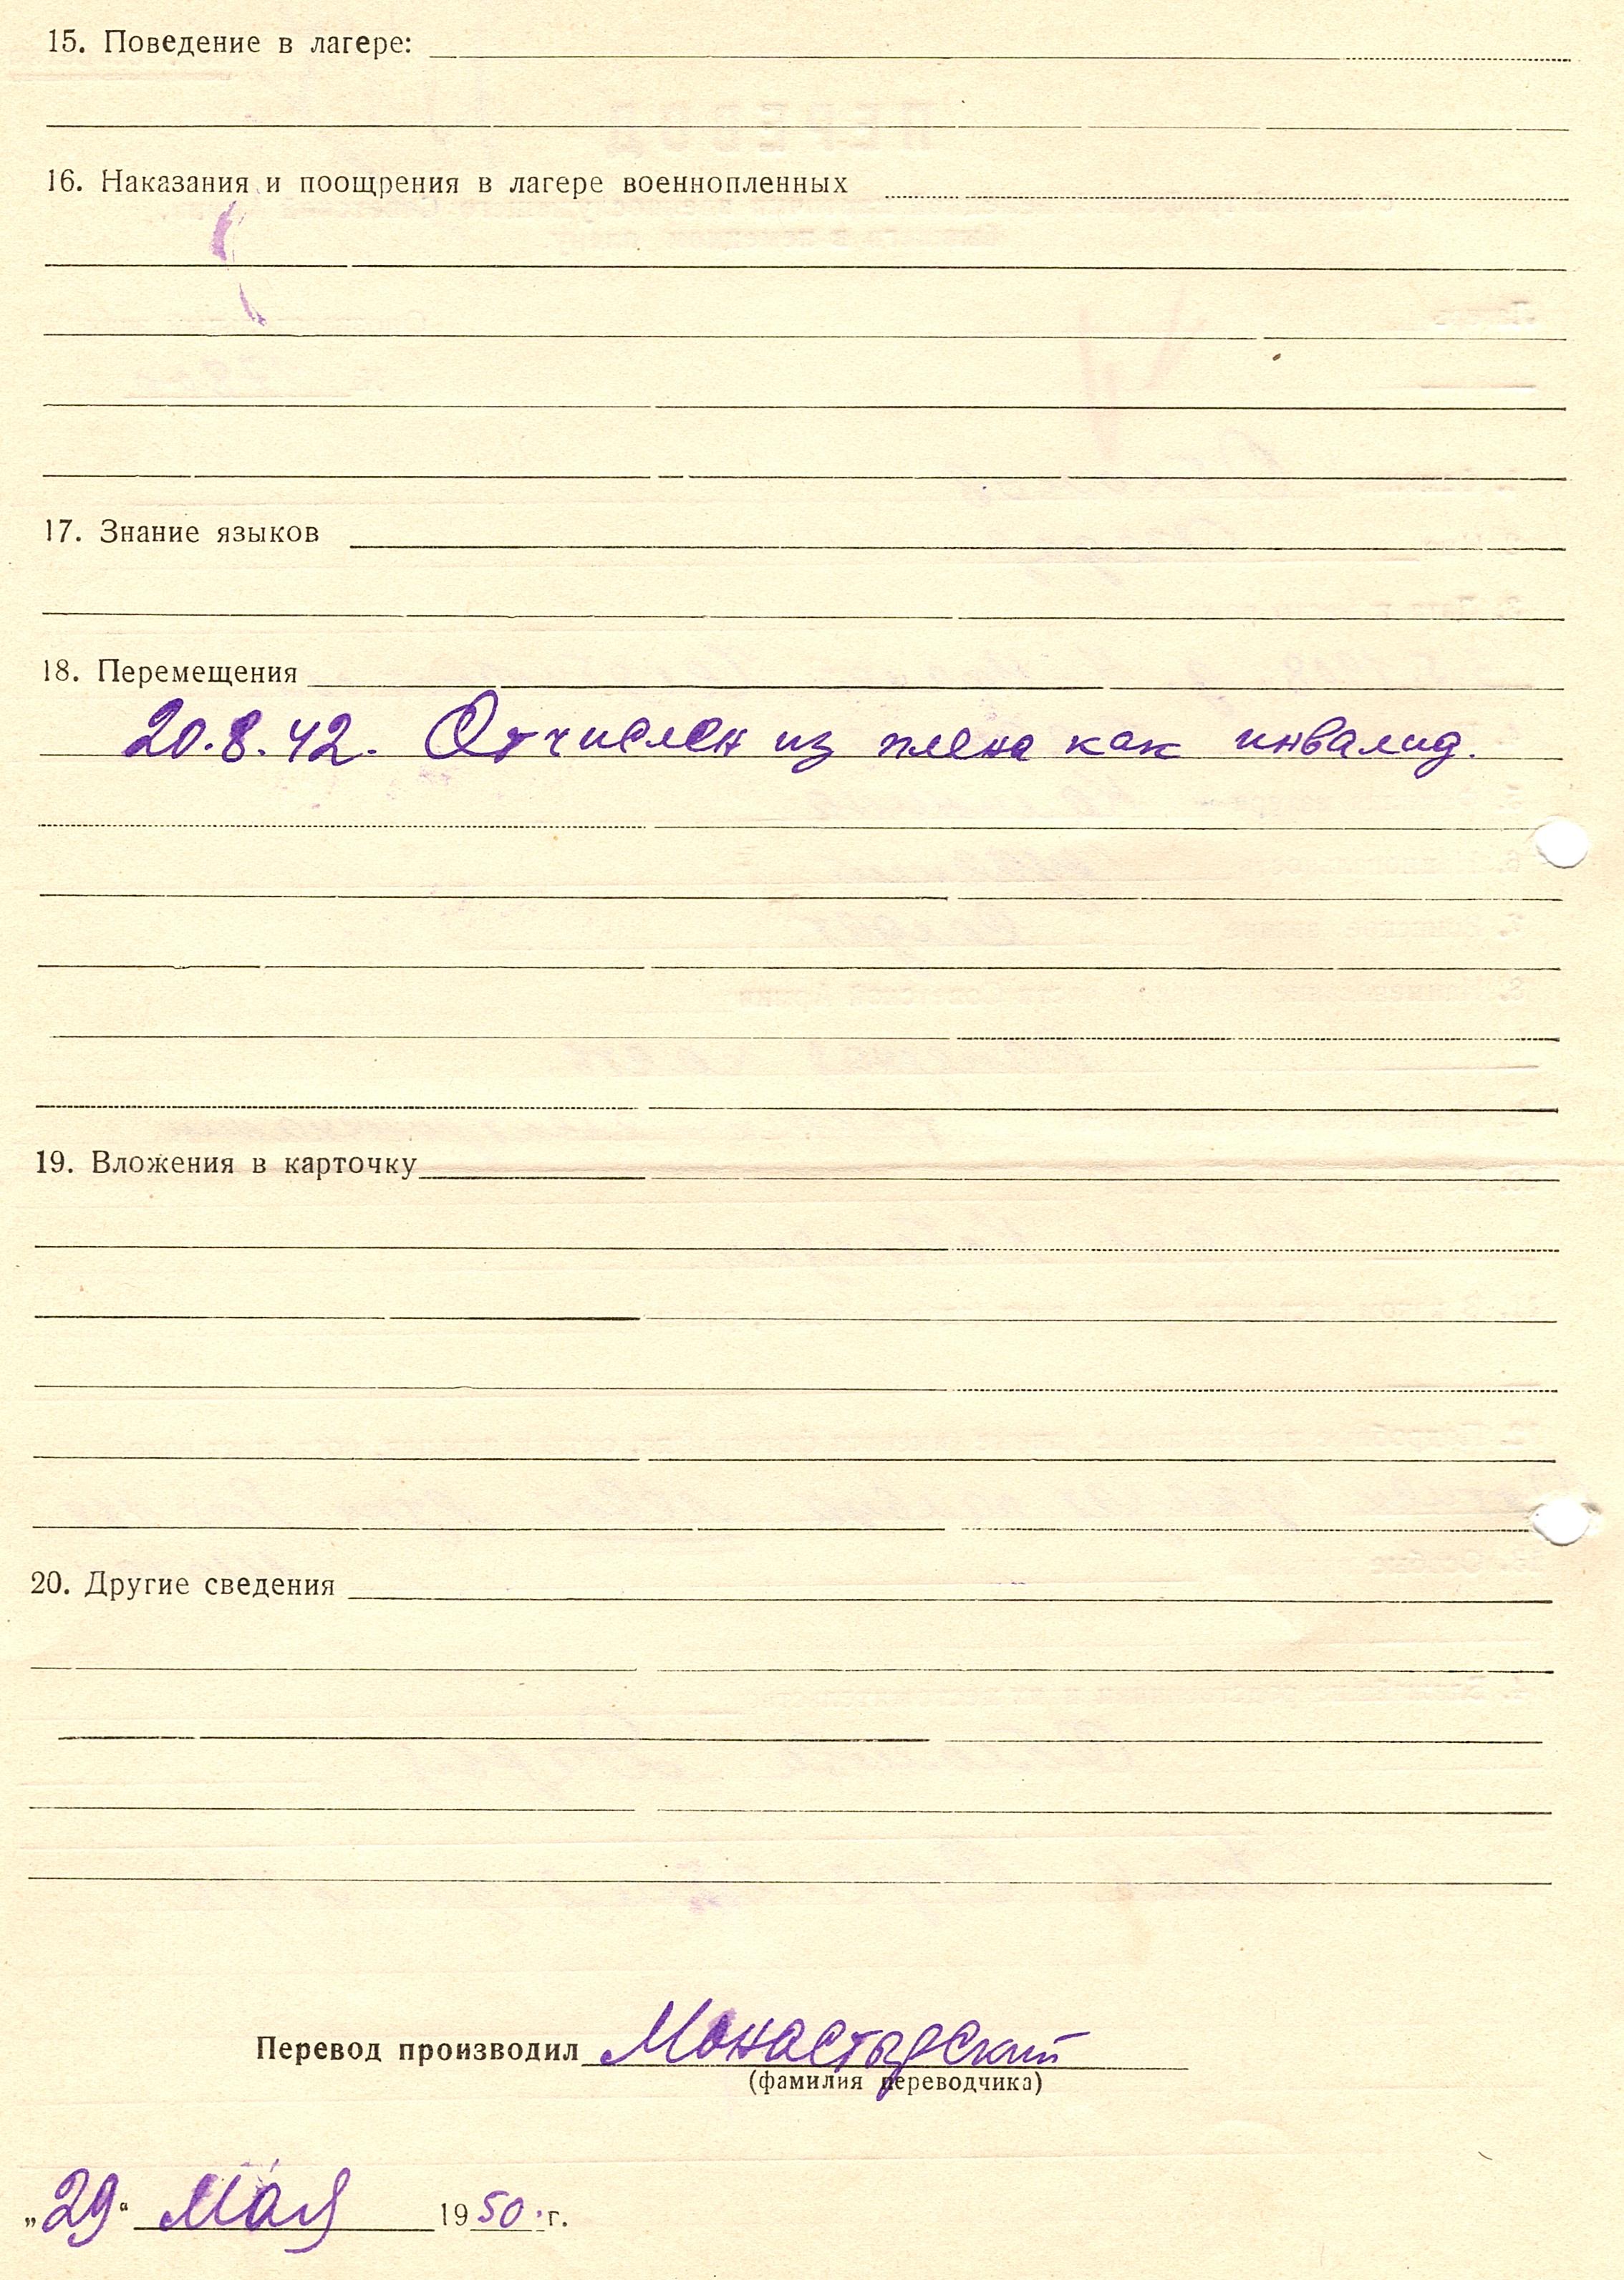 15. Поведение в лагере:
16. Наказания и поощрения в лагере военнопленных
17. Знание языков
18. Перемещения
20.8.42. Отчислен из плена как инвалид.
19. Вложения в карточку
20. Другие сведения
Перевод производил Монастырский
(фамилия переводчика)
„29“ Мая 1950 г.